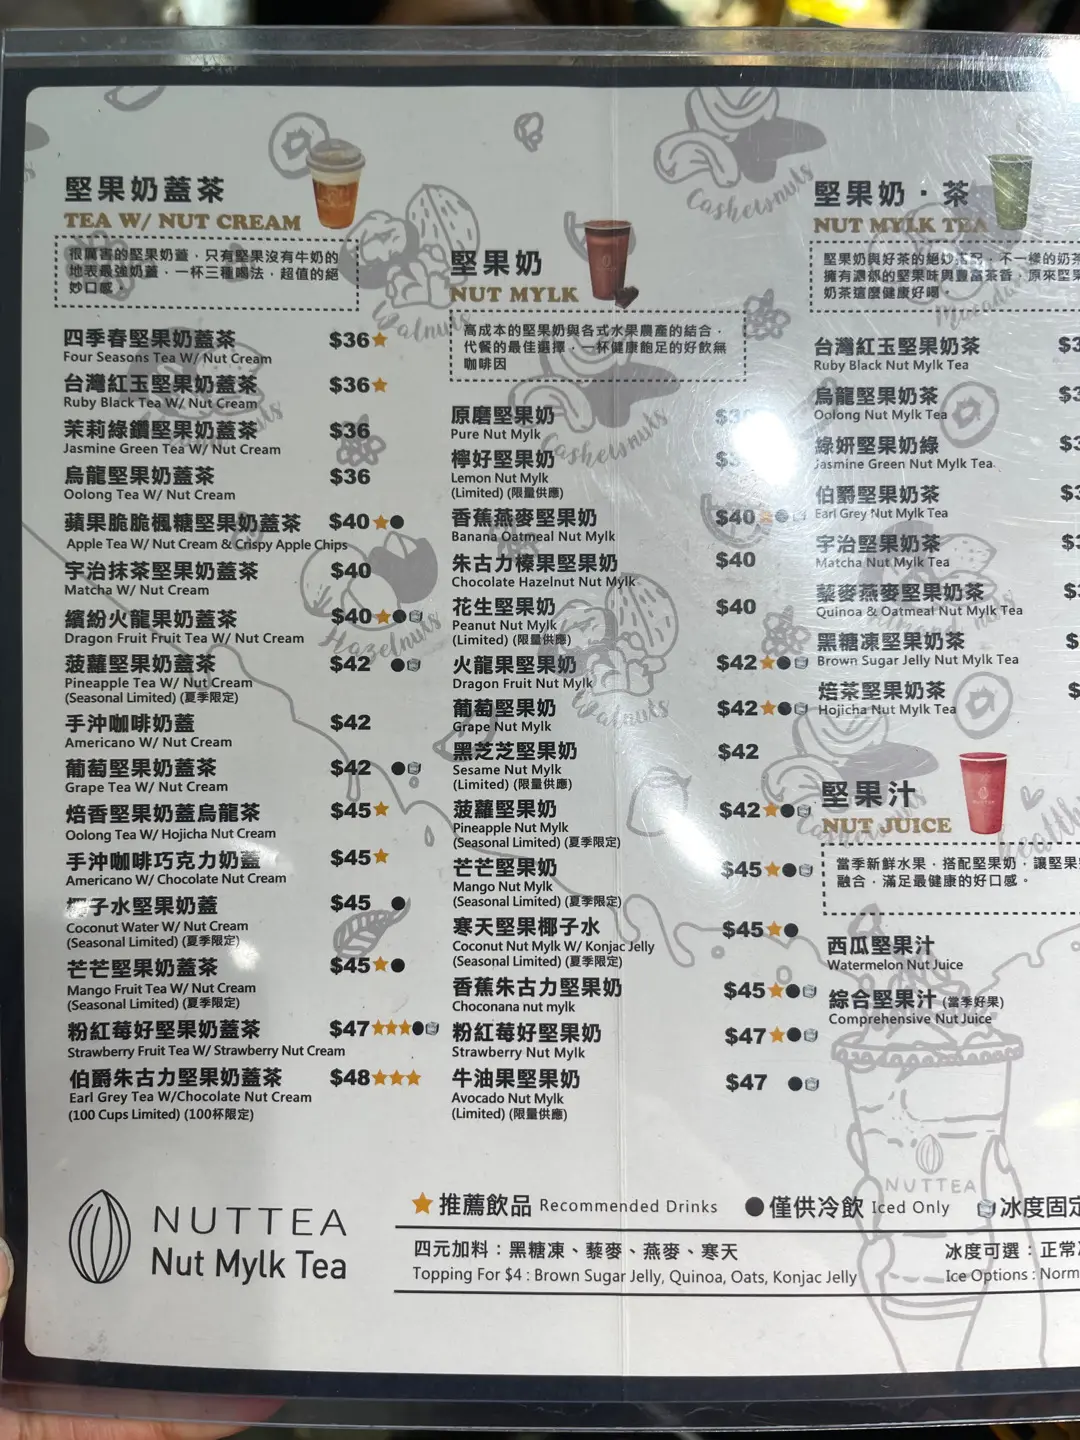 堅果奶蓋茶
TEA W/ NUT CREAM
很厲害的堅果奶蓋，只有堅果沒有牛奶的
地表最強奶蓋，一杯三種喝法，超值的絕
妙口感。
四季春堅果奶蓋茶 $36
Four Seasons Tea W/ Nut Cream
台灣紅玉堅果奶蓋茶 $36
Ruby Black Tea W/ Nut Cream
茉莉綠鑽堅果奶蓋茶 $36
Jasmine Green Tea W/ Nut Cream
烏龍堅果奶蓋茶 $36
Oolong Tea W/ Nut Cream
蘋果脆脆楓糖堅果奶蓋茶 $40
Apple Tea W/ Nut Cream & Crispy Apple Chips
宇治抹茶堅果奶蓋茶 $40
Matcha W/ Nut Cream
繽紛火龍果奶蓋茶 $40
Dragon Fruit Fruit Tea W/ Nut Cream
菠蘿堅果奶蓋茶 $42
Pineapple Tea W/ Nut Cream
(Seasonal Limited) (夏季限定)
手沖咖啡奶蓋 $42
Americano W/ Nut Cream
葡萄堅果奶蓋茶 $42
Grape Tea W/ Nut Cream
焙香堅果奶蓋烏龍茶 $45
Oolong Tea W/ Hojicha Nut Cream
手沖咖啡巧克力奶蓋 $45
Americano W/ Chocolate Nut Cream
椰子水堅果奶蓋 $45
Coconut Water W/ Nut Cream
(Seasonal Limited) (夏季限定)
芒芒堅果奶蓋茶 $45
Mango Fruit Tea W/ Nut Cream
(Seasonal Limited) (夏季限定)
粉紅莓好堅果奶蓋茶 $47
Strawberry Fruit Tea W/ Strawberry Nut Cream
伯爵朱古力堅果奶蓋茶 $48
Earl Grey Tea W/Chocolate Nut Cream
(100 Cups Limited) (100杯限定)
堅果奶
NUT MYLK
高成本的堅果奶與各式水果農產的結合，
代餐的最佳選擇，一杯健康飽足的好飲無
咖啡因
原磨堅果奶
Pure Nut Mylk
檸好堅果奶
Lemon Nut Mylk
(Limited) (限量供應)
香蕉燕麥堅果奶 $40
Banana Oatmeal Nut Mylk
朱古力榛果堅果奶 $40
Chocolate Hazelnut Nut Mylk
花生堅果奶 $40
Peanut Nut Mylk
(Limited) (限量供應)
火龍果堅果奶 $42
Dragon Fruit Nut Mylk
葡萄堅果奶 $42
Grape Nut Mylk
黑芝芝堅果奶 $42
Sesame Nut Mylk
(Limited) (限量供應)
菠蘿堅果奶 $42
Pineapple Nut Mylk
(Seasonal Limited) (夏季限定)
芒芒堅果奶 $45
Mango Nut Mylk
(Seasonal Limited) (夏季限定)
寒天堅果椰子水 $45
Coconut Nut Mylk W/ Konjac Jelly
(Seasonal Limited) (夏季限定)
香蕉朱古力堅果奶 $45
Choconana nut mylk
粉紅莓好堅果奶 $47
Strawberry Nut Mylk
牛油果堅果奶 $47
Avocado Nut Mylk
(Limited) (限量供應)
堅果奶・茶
NUT MYLK TEA
堅果奶與好茶的絕妙搭配，不一樣的奶茶
擁有濃郁的堅果味與豐富茶香，原來堅果
奶茶這麼健康好喝
台灣紅玉堅果奶茶
Ruby Black Nut Mylk Tea
烏龍堅果奶茶
Oolong Nut Mylk Tea
綠妍堅果奶綠
Jasmine Green Nut Mylk Tea
伯爵堅果奶茶
Earl Grey Nut Mylk Tea
宇治堅果奶茶
Matcha Nut Mylk Tea
藜麥燕麥堅果奶茶
Quinoa & Oatmeal Nut Mylk Tea
黑糖凍堅果奶茶
Brown Sugar Jelly Nut Mylk Tea
焙茶堅果奶茶
Hojicha Nut Mylk Tea
堅果汁
NUT JUICE
當季新鮮水果，搭配堅果奶，讓堅果
融合，滿足最健康的好口感。
西瓜堅果汁
Watermelon Nut Juice
綜合堅果汁 (當季好果)
Comprehensive Nut Juice
NUTTEA
NUTTEA
Nut Mylk Tea
推薦飲品 Recommended Drinks 僅供冷飲 Iced Only 冰度固定
四元加料：黑糖凍、藜麥、燕麥、寒天 冰度可選：正常
Topping For $4 : Brown Sugar Jelly, Quinoa, Oats, Konjac Jelly Ice Options : Norm
Cashewnuts
Walnuts
Cashewnuts
Hazelnuts
Walnuts